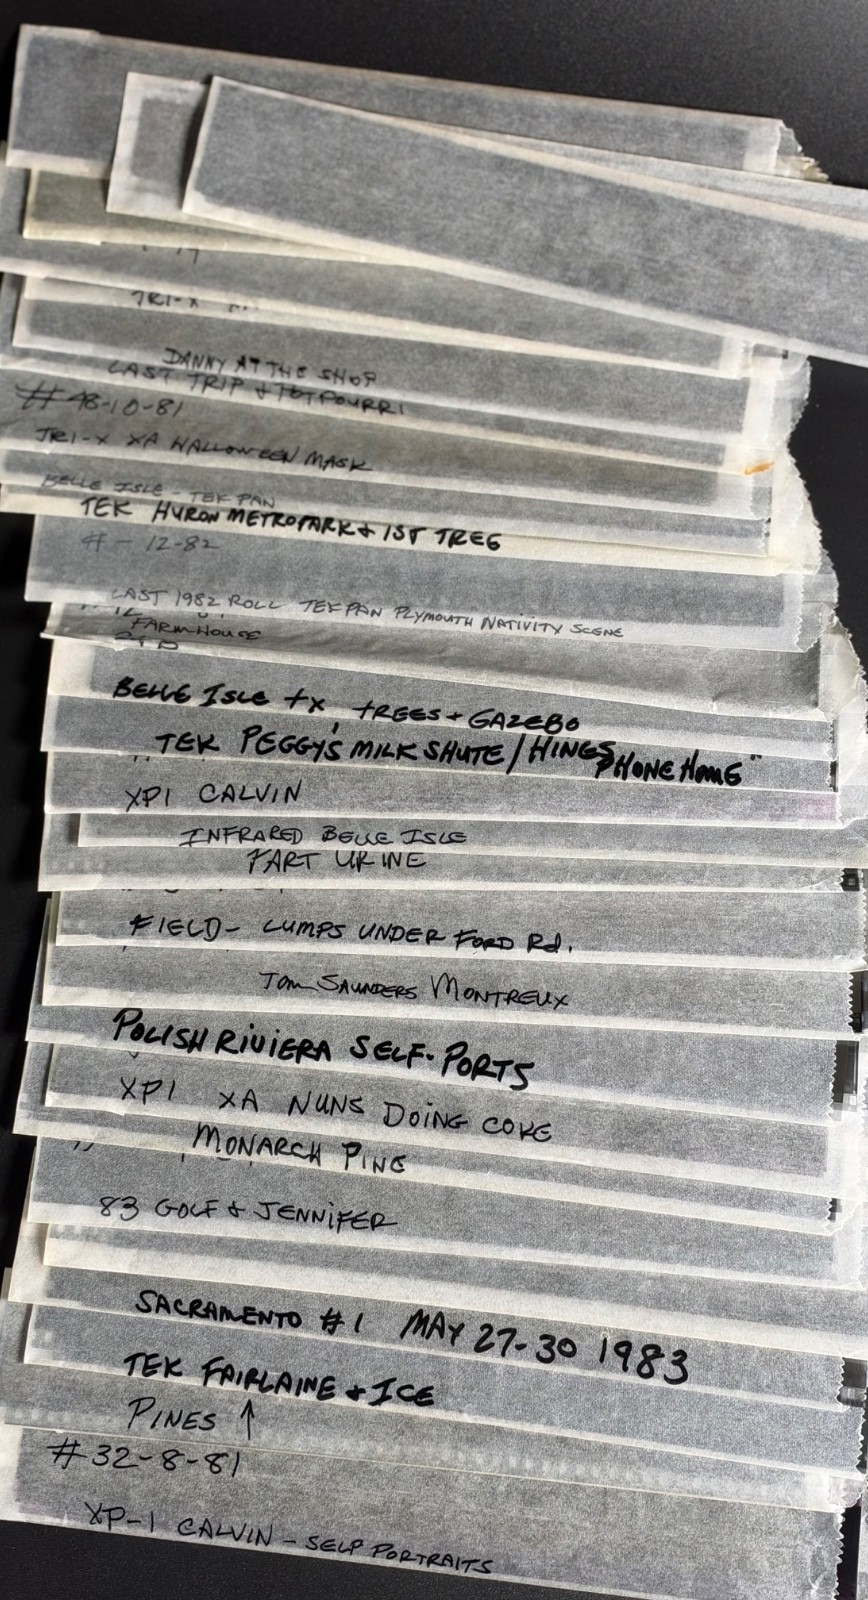 TRI-X
DANNY AT THE SHOP
LAST TRIP & POTPOURRI
# 48-10-81
TRI-X XA HALLOWEEN MASK
BELLE ISLE - TEK PAN
TEK HURON METROPARK & 1ST TREE
# - 12-82
LAST 1982 ROLL TEK PAN PLYMOUTH NATIVITY SCENE
FARM HOUSE
BELLE ISLE tx TREES + GAZEBO
TEK PEGGY'S MILK SHUTE / HINES PHONE HOME"
XP1 CALVIN
INFRARED BELLE ISLE
FART URINE
FIELD- LUMPS UNDER FORD Rd.
TOM SAUNDERS MONTREUX
POLISH RIVIERA SELF-PORTS
XP1 XA NUNS DOING COKE
MONARCH PINE
83 GOLF & JENNIFER
SACRAMENTO #1 MAY 27-30 1983
TEK FAIRLAINE & ICE
PINES ↑
# 32-8-81
XP-1 CALVIN - SELF PORTRAITS